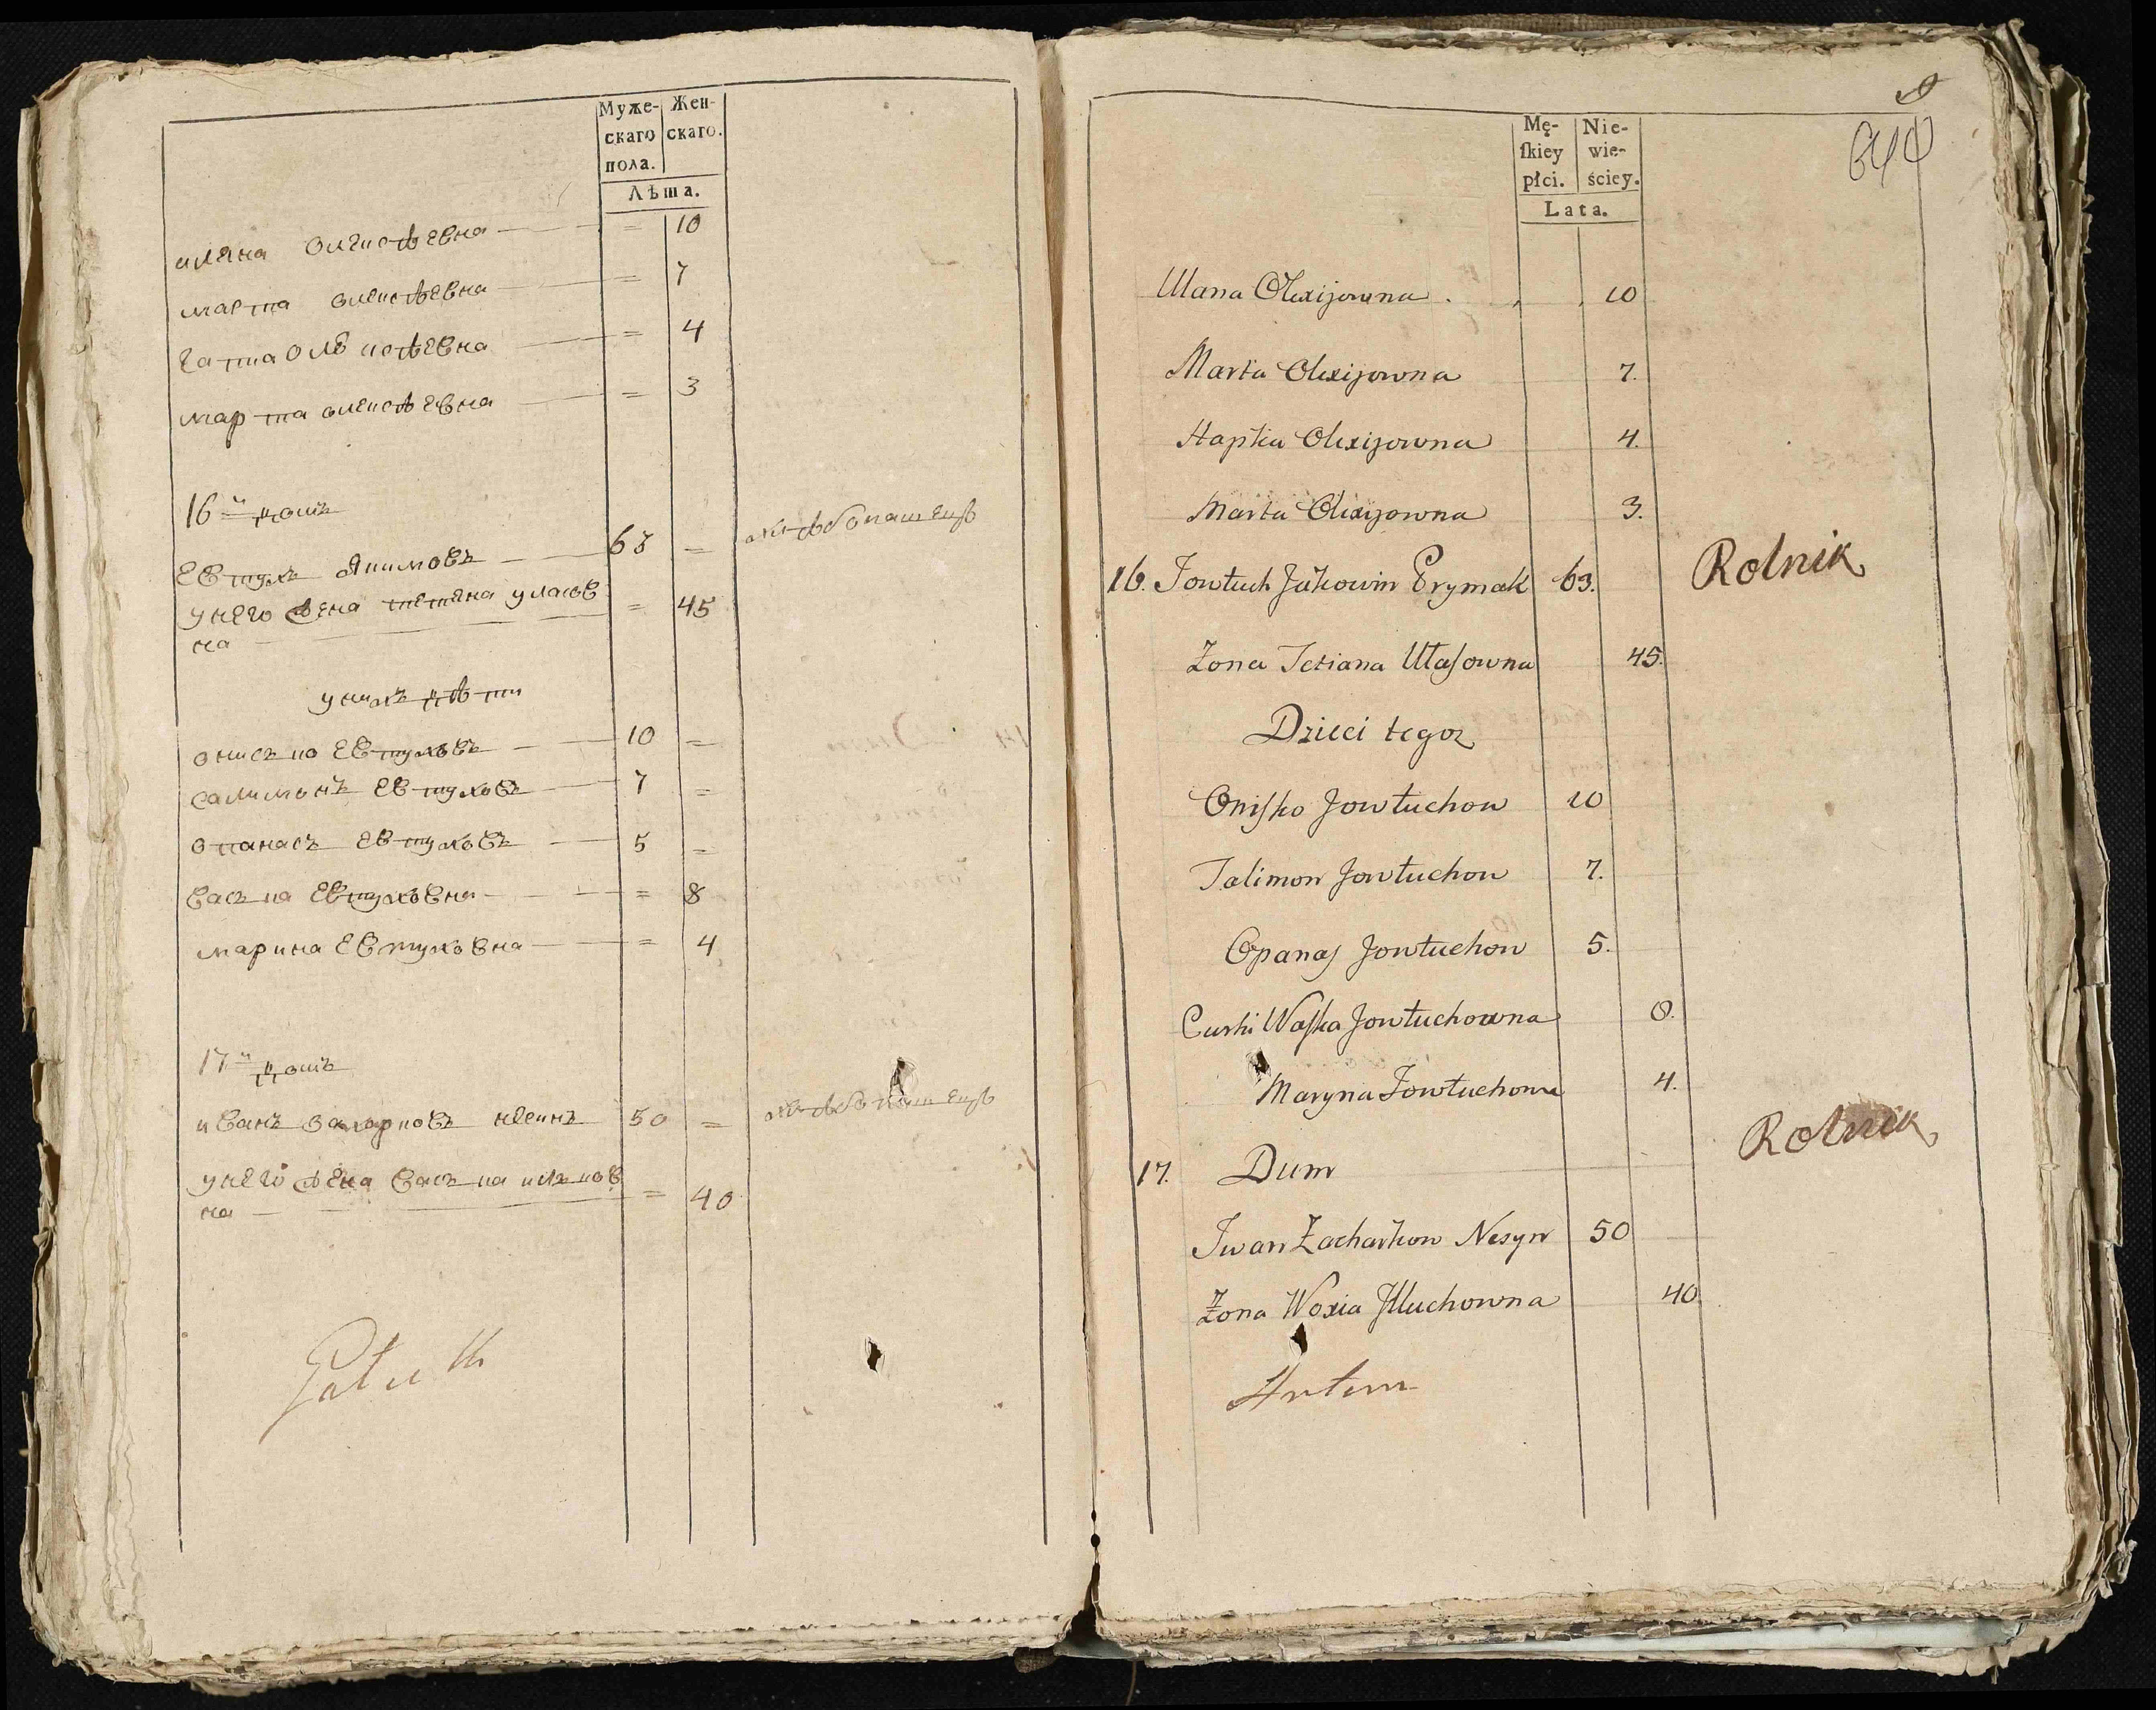 Муже-
скаго
пола.
Жен-
скаго.
Лѣта.
уляна олексѣевна = 10
марта олексѣевна = 7
гапта олексѣевна = 4
марта олексѣевна = 3
16й домъ
Евтухъ Якимовъ 63 =
хлѣбопашецъ
у него жена тетяна уласов
на = 45
у нихъ дѣти
онисько Евтуховъ 10 =
салимонъ Евтуховъ 7 =
опанасъ Евтуховъ 5 =
васька Евтуховна = 8
марина Евтуховна = 4
17й домъ
иванъ захарковъ несинъ 50 =
хлѣбопашецъ
у него жена васька
на = 40
640
Mę-
ſkiey
płci.
Nie-
wie-
ściey.
Lata.
Ulana Olexijowna 10
Marta Olexijowna 7.
Hapka Olexijowna 4.
Marta Olexijowna 3.
16. Jowtuch Jakowin Erymak 63. Rolnik
Żona Tetiana Ułaſowna 45.
Dzieci tegoz
Oniſko Jowtuchow 10
Salimon Jowtuchow 7.
Opanaſ Jowtuchow 5.
Curki Waſka Jowtuchowna 8.
Maryna Jowtuchowna 4.
17. Dum Rolnik
Iwan Zacharkow Nesyn 50
Żona Woxia 40
Artem